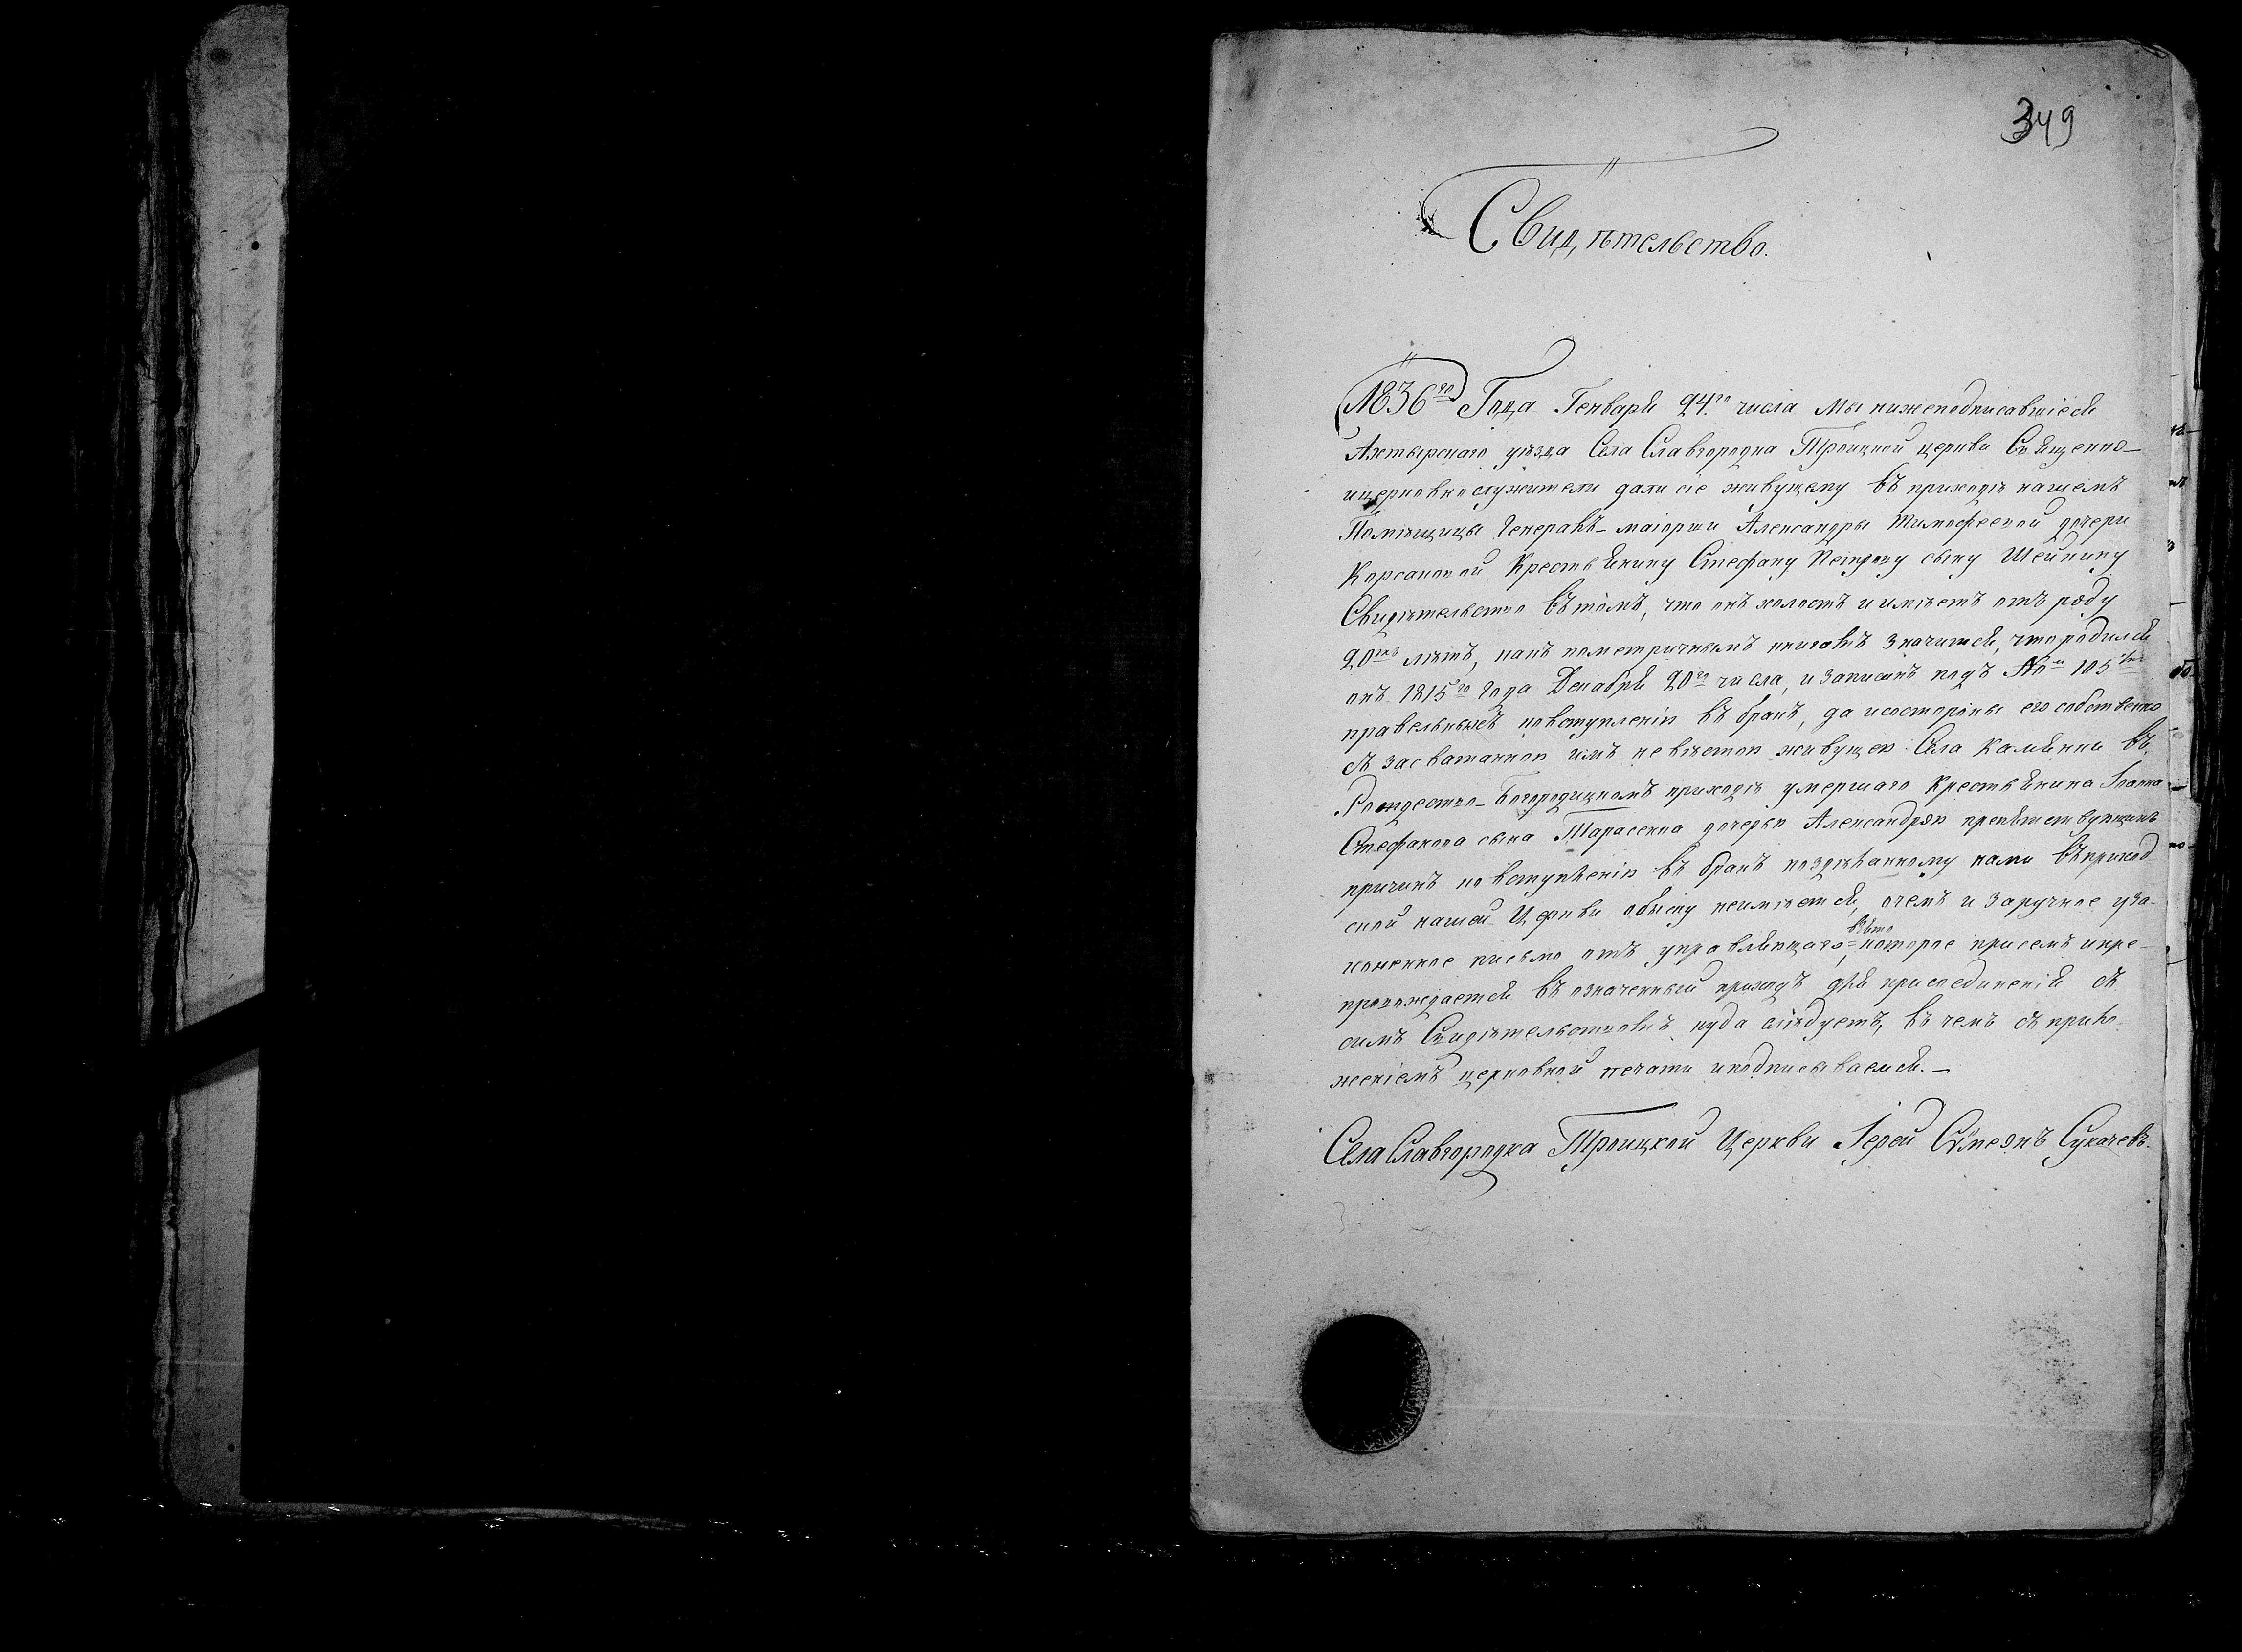 349
Свидѣтельство.
1836го Года Генваря 24го числа мы нижеподписавшіеся
Ахтырскаго уѣзда Села Славгородка Троицкой церкви Священно-
ицерковнослужители дали сіе живущему въ приходѣ нашемъ
Помѣщицы Генералъ-маіорши Александры Тимофеевой дочери
Корсаковой Крестьянину Стефану Петрову сыну Шейкину
Свидѣтельство вътомъ, что онъ холостъ иимѣетъ отъ роду
20ть лѣтъ, какъ пометричнымъ книгамъ значится, чтородился
онъ 1815го года Декабря 20го числа, изаписанъ подъ №м 105
правельныхъ ковступленію въ бракъ, да исостороны его собственно
съ засватанною имъ невѣстою живущею Села Камянки въ
Рождество-Богородицкомъ приходѣ умершаго крестьянина Іоанна
Стефанова сына Тарасенка дочерью Александрою препятствующихъ
причинъ ковступленію въ бракъ поздѣланному нами въприход
ской нашей Церкви обыску неимѣется, очемъ и заручное уза-
коненное письмо отъ управляющаго взято, которое присемъ ипре-
провождается въ означенный приходъ для присоединенія съ
симъ Свидѣтельствомъ куда слѣдуетъ, въ чемъ съ прило-
женіемъ церковной печати иподписываемся.—
Села Славгородка Троицкой Церкви Іерей Сѵмеонъ Сукачевъ.